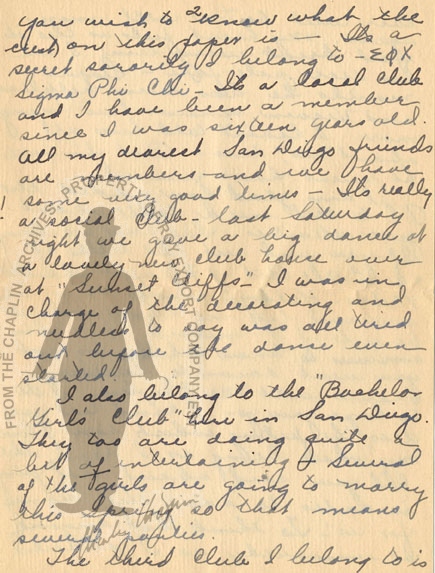 2
You wish to know what the
crest on this paper is — It's a
secret sorority I belong to - ΣΦΧ
Sigma Phi Chi - It's a local club
and I have been a member
since I was sixteen years old.
All my dearest San Diego friends
are members - and we have
some very good times - It's really
a social club - last Saturday
night we gave a big dance at
a lovely new club house over
at "Sunset Cliffs" - I was in
charge of the decorating and
needless to say was all tired
out before the dance even
started.
I also belong to the "Bachelor
Girl's Club" here in San Diego.
They too are doing quite a
bit of entertaining & several
of the girls are going to marry
this Spring so that means
several parties.
The third club I belong to is
FROM THE CHAPLIN ARCHIVES, PROPERTY OF ROY EXPORT COMPANY
Charlie Chaplin